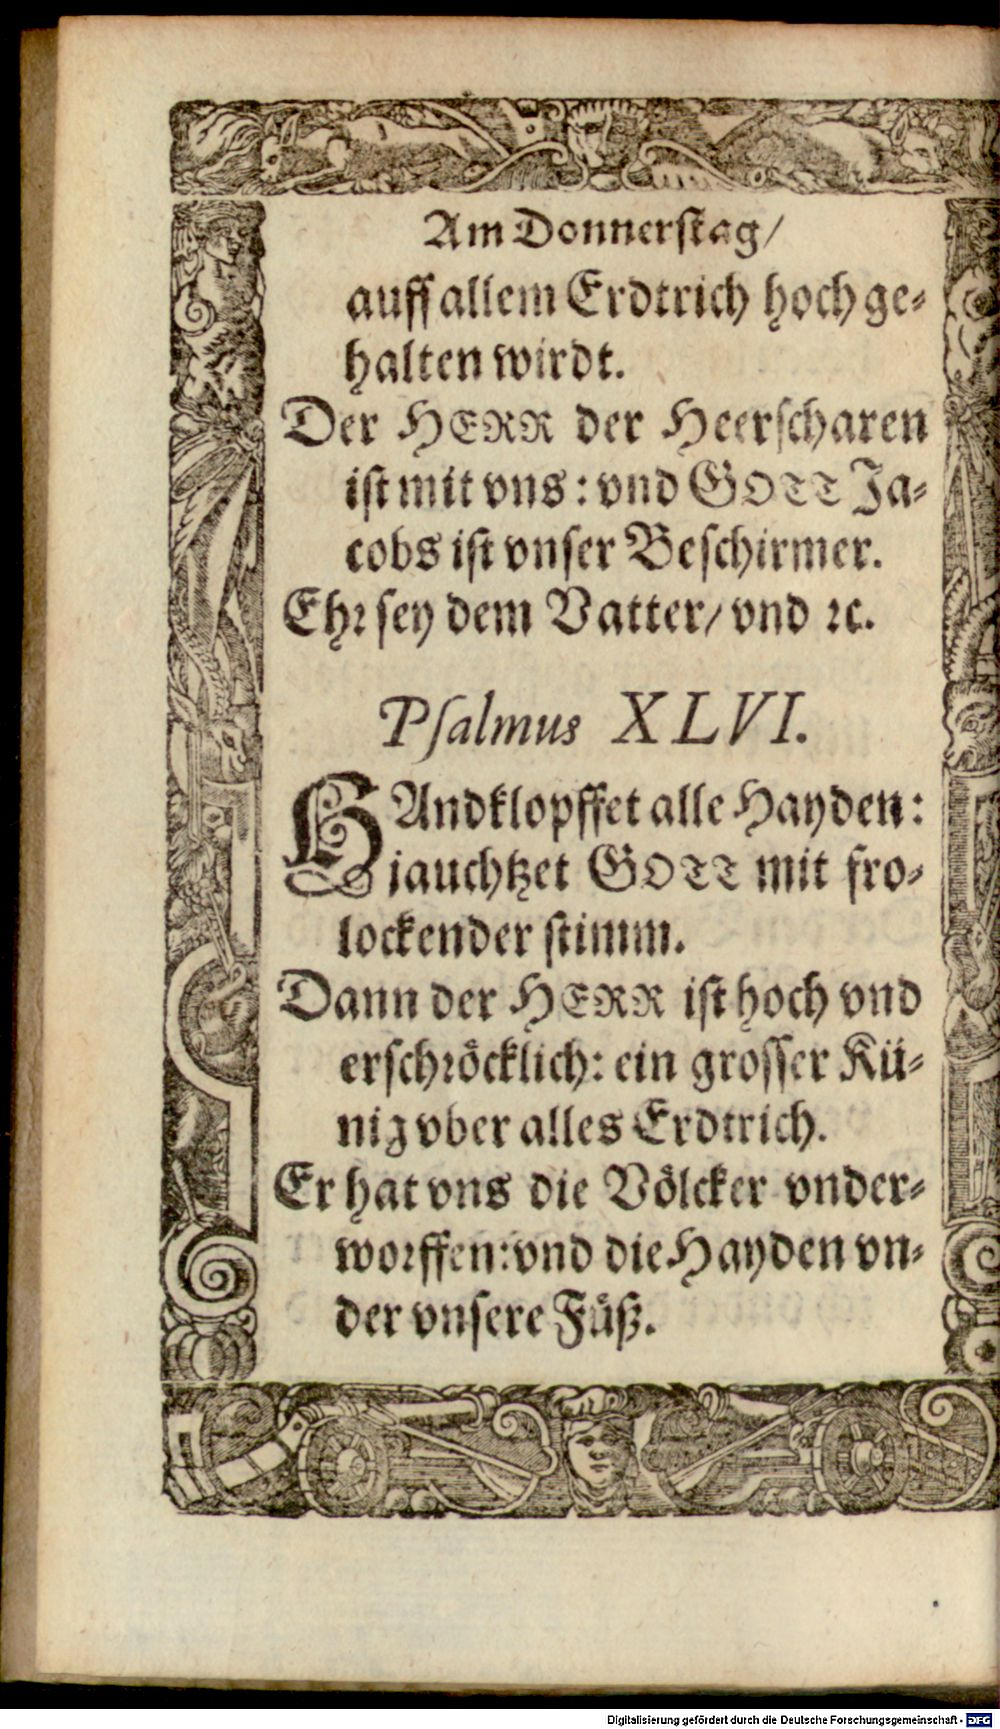 Am Donnerstag/
auff allem Erdtrich hoch ge-
halten wirdt.
Der HERR der Heerscharen
ist mit vns: vnd GOTT Ja-
cobs ist vnser Beschirmer.
Ehr sey dem Vatter/ vnd ꝛc.
Psalmus XLVI.
HAndklopffet alle Hayden:
jauchtzet GOTT mit fro-
lockender stimm.
Dann der HERR ist hoch vnd
erschröcklich: ein grosser Kü-
nig vber alles Erdtrich.
Er hat vns die Völcker vnder-
worffen: vnd die Hayden vn-
der vnsere Füß.
Digitalisierung gefördert durch die Deutsche Forschungsgemeinschaft - DFG